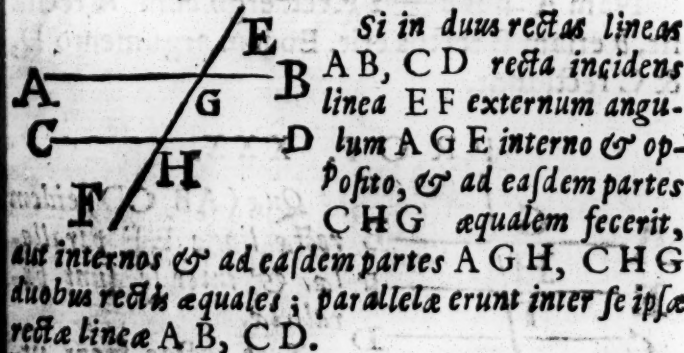 E
A B
G
C D
H
F
Si in duas rectas lineas
A B, C D recta incidens
linea E F externum angu-
lum A G E interno & op-
posito, & ad easdem partes
C H G æqualem fecerit,
aut internos & ad easdem partes A G H, C H G
duobus rectis æquales ; parallelæ erunt inter se ipsæ
rectæ lineæ A B, C D.